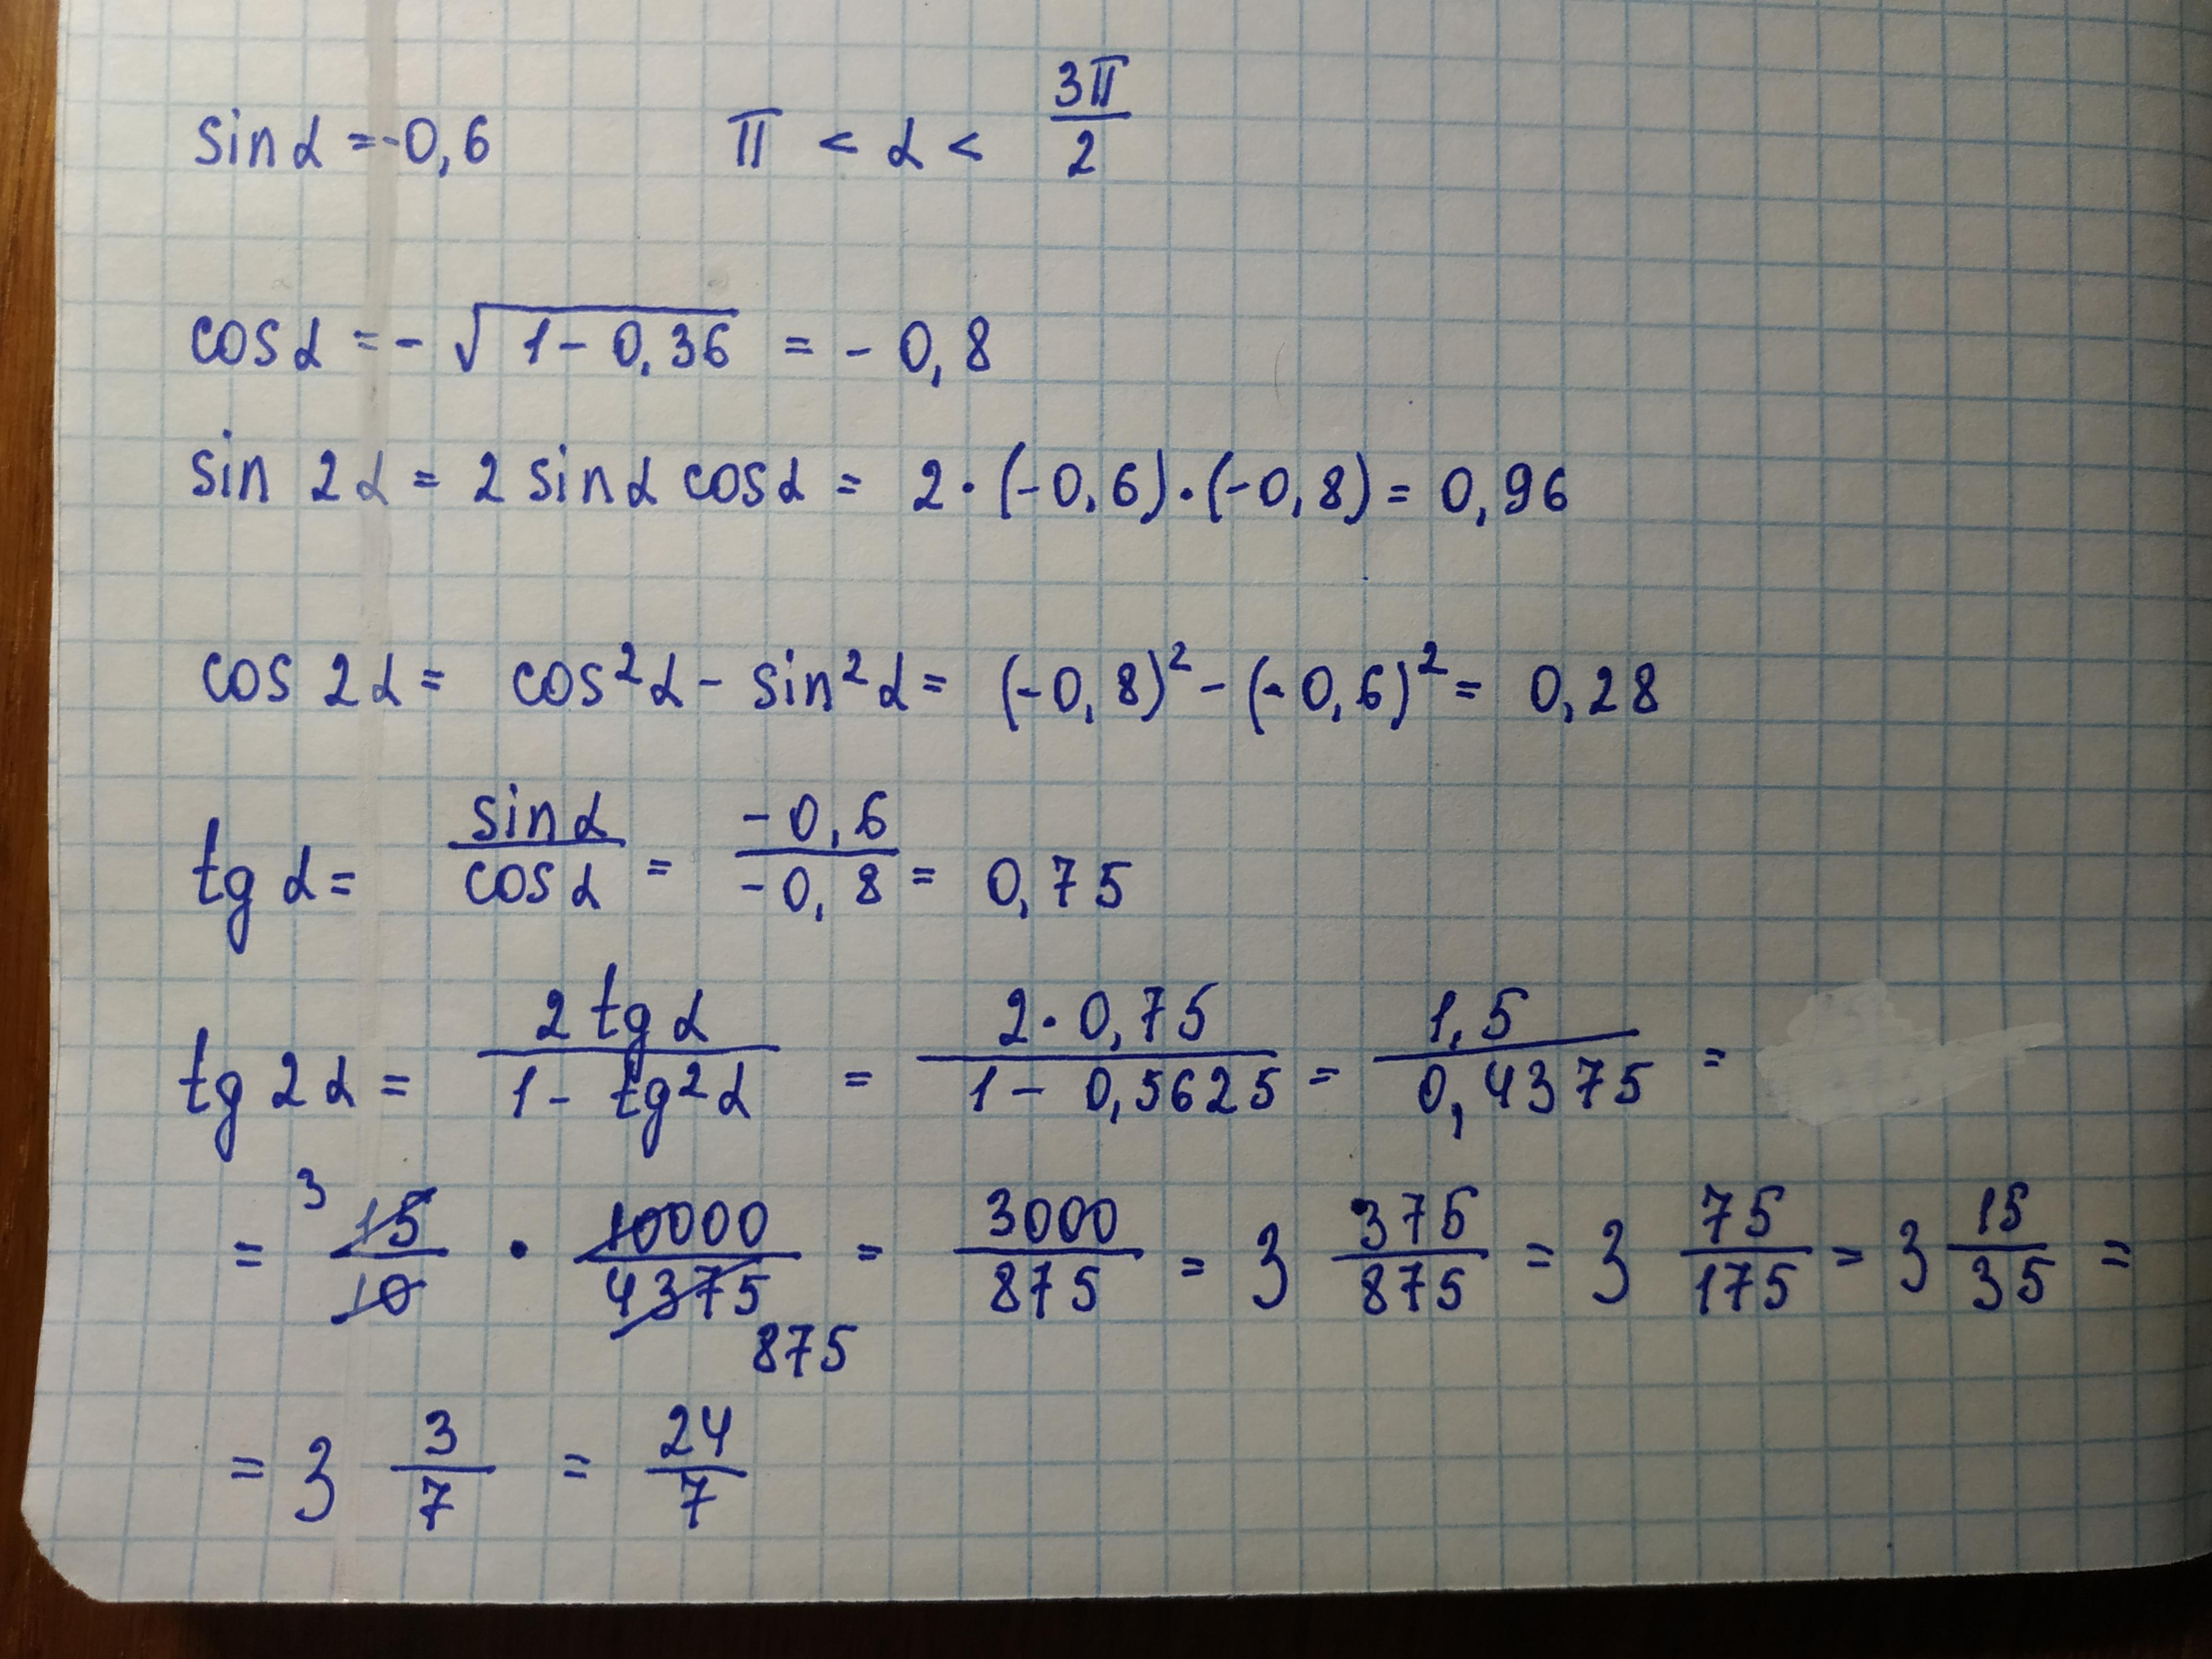 sin α = -0,6 π < α < 3π/2
cos α = - √(1 - 0,36) = - 0,8
sin 2α = 2 sin α cos α = 2 · (-0,6) · (-0,8) = 0,96
cos 2α = cos² α - sin² α = (-0,8)² - (-0,6)² = 0,28
tg α = sin α / cos α = -0,6 / -0,8 = 0,75
tg 2α = 2 tg α / 1 - tg² α = 2 · 0,75 / 1 - 0,5625 = 1,5 / 0,4375 =
= 3 15/10 · 10000/4375 875 = 3000/875 = 3 375/875 = 3 75/175 = 3 15/35 =
= 3 3/7 = 24/7